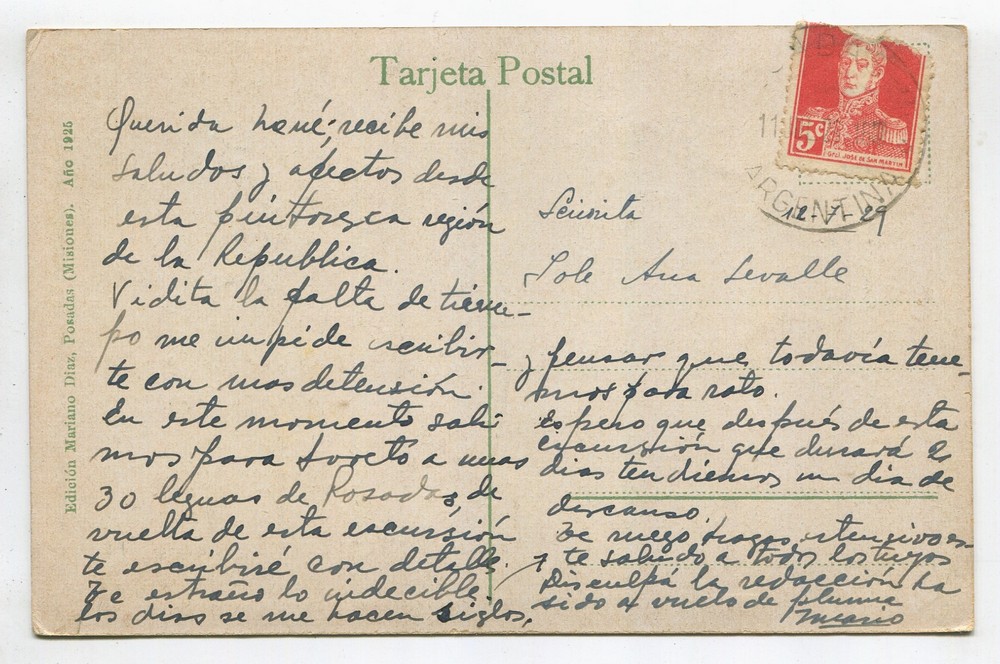 Tarjeta Postal
Edición Mariano Diaz, Posadas (Misiones). Año 1925
5c
GRAL JOSE DE SAN MARTIN
ARGENTINA
12-VI-29
Querida recibe mis
saludos y afectos desde
esta pintorezca región
de la Republica.
Vidita la falta de tiem-
po me impide escribir-
te con mas detensión.
En este momento sali
mos para Loreto a unas
30 leguas de Posadas, de
vuelta de esta escursión
te escribiré con detalle.
Te estraño lo indecible,
los dias se me hacen siglos,
Señorita
Ana Levalle
y pensar que todavía tene-
mos para rato.
Espero que después de esta
escursión que durará 2
dias tendremos un dia de
descanso.
Te ruego hagas estensivo
te saludo a todos los tuyos
Disculpá la redacción ha
sido a vuelo de pluma
Mario